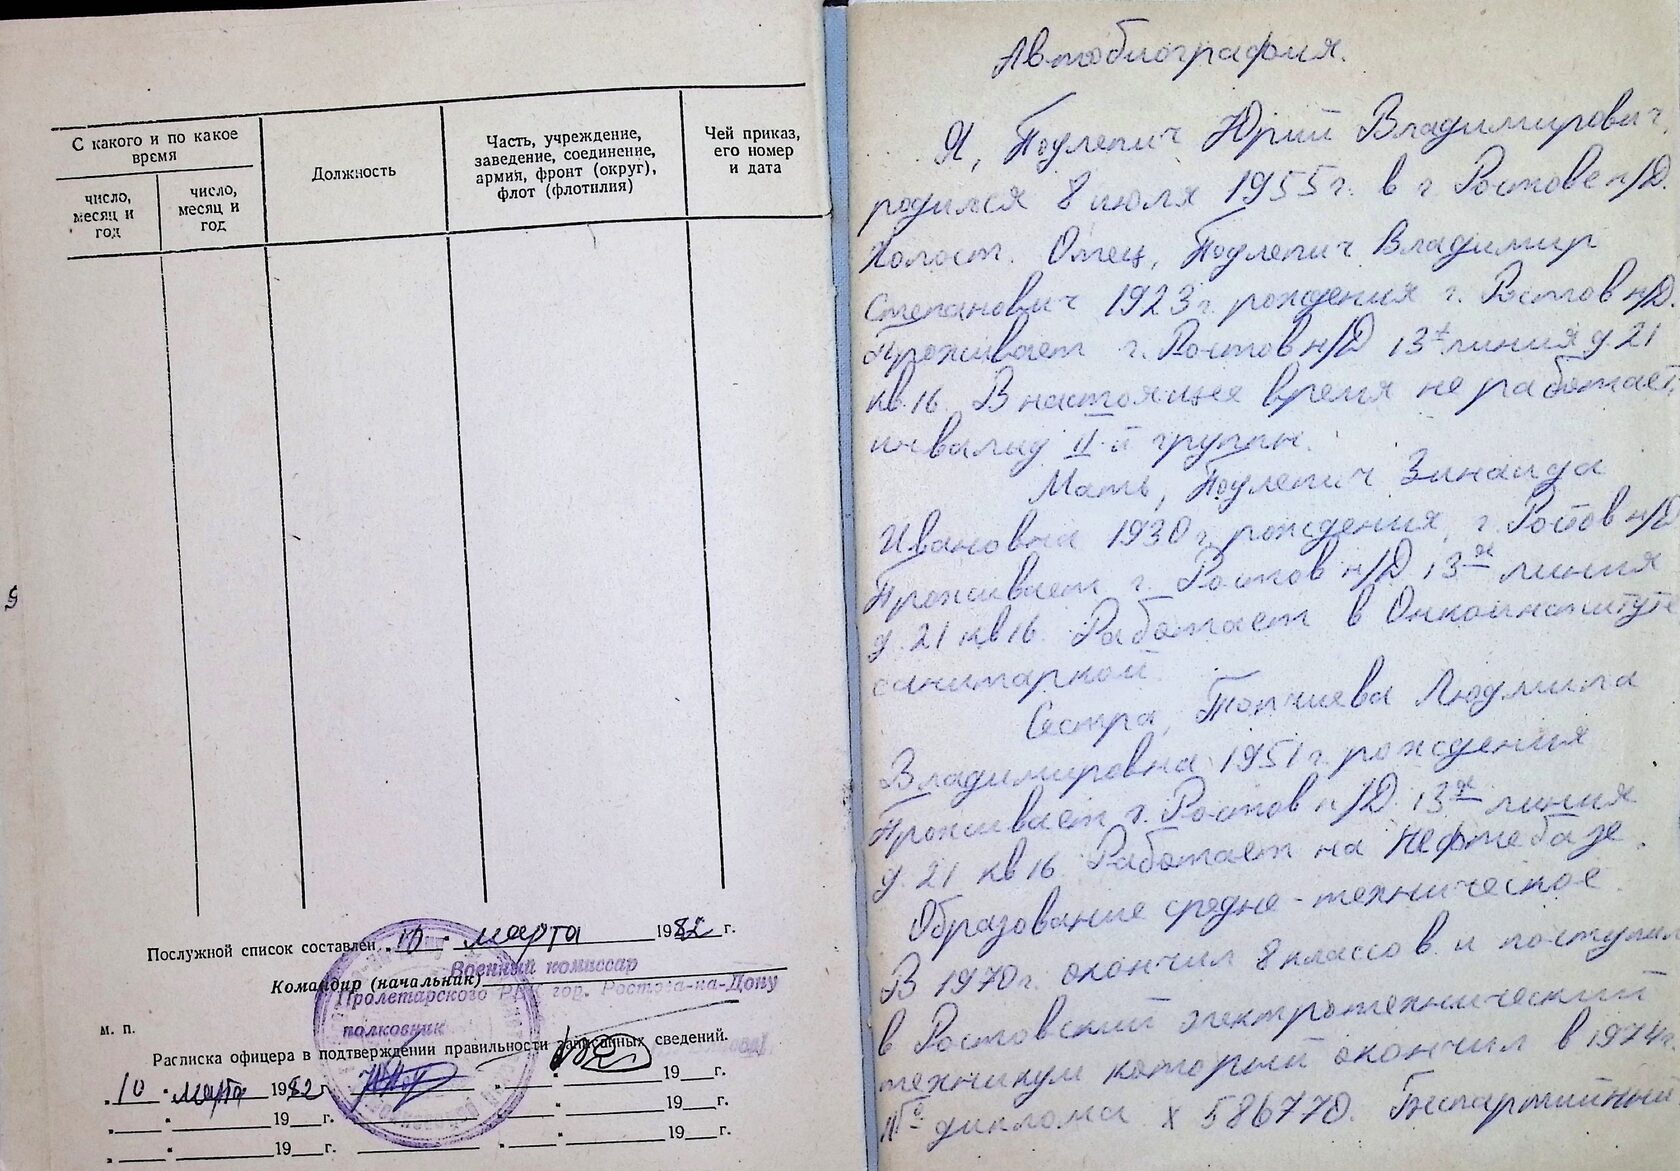 С какого и по какое
время
число,
месяц и
год
число,
месяц и
год
Должность
Часть, учреждение,
заведение, соединение,
армия, фронт (округ),
флот (флотилия)
Чей приказ,
его номер
и дата
5
Послужной список составлен „10" марта 1982 г.
Военный комиссар
Командир (начальник)
Пролетарского РВК гор. Ростова-на-Дону
полковник
м. п.
Расписка офицера в подтверждении правильности записанных сведений.
„10" марта 1982 г. „ " 19 г.
„ " 19 г. „ " 19 г.
„ " 19 г. „ " 19 г.
Автобиография.
Я, Подлепич Юрий Владимирович,
родился 8 июля 1955 г. в г Ростове н/Д.
Холост. Отец, Подлепич Владимир
Степанович 1923 г. рождения г. Ростов н/Д.
Проживает г. Ростов н/Д 13я линия д 21
кв 16. В настоящее время не работает,
инвалид II-й группы.
Мать, Подлепич Зинаида
Ивановна 1930 г рождения, г. Ростов н/Д
Проживает г. Ростов н/Д 13я линия
д. 21 кв 16. Работает в Онкоинституте
санитаркой.
Сестра, Топчиева Людмила
Владимировна 1951 г. рождения
Проживает г. Ростов н/Д. 13я линия
д. 21 кв 16 Работает на Нефтебазе.
Образование средне-техническое.
В 1970 г. окончил 8 классов и поступил
в Ростовский электротехнический
техникум который окончил в 1974 г.
№ диплома Х 586770. Беспартийный